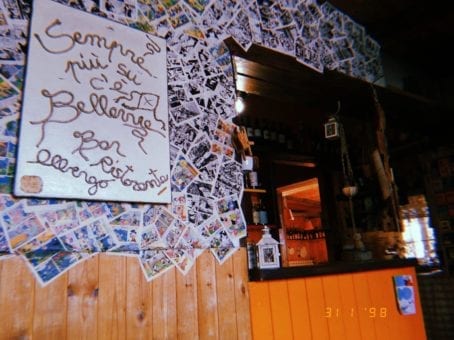 Sempre
più su
c'è
Bellevue
Bar
Ristorante
Albergo
31 1 '98